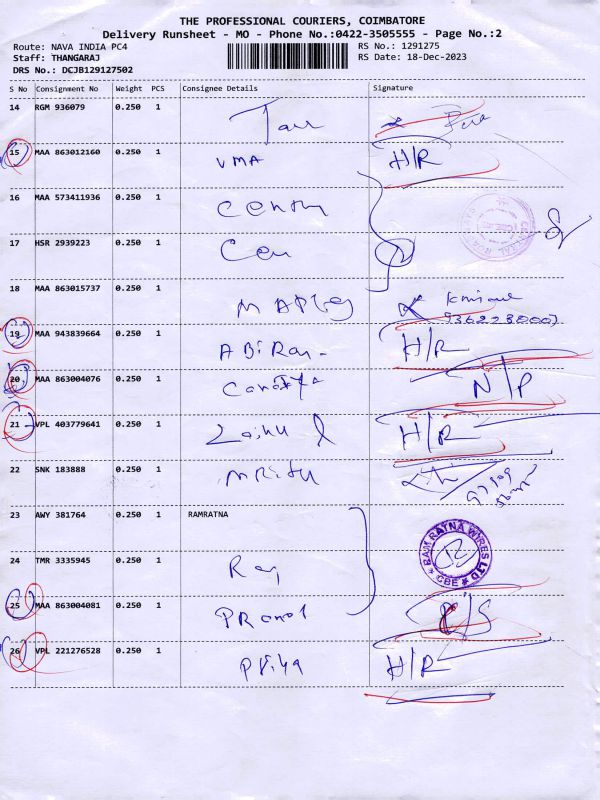 THE PROFESSIONAL COURIERS, COIMBATORE
Delivery Runsheet - MO - Phone No.:0422-3505555 - Page No.:2
Route: NAVA INDIA PC4
RS No.: 1291275
Staff: THANGARAJ
RS Date: 18-Dec-2023
DRS No.: DCJB129127502
S No Consignment No Weight PCS Consignee Details Signature
14 RGM 936079 0.250 1
15 MAA 863012160 0.250 1 VMA H/R
16 MAA 573411936 0.250 1
17 HSR 2939223 0.250 1 Cen
18 MAA 863015737 0.250 1
19 MAA 943839664 0.250 1 ABiRam H/R
20 MAA 863004076 0.250 1 N/P
21 VPL 403779641 0.250 1 H/R
22 SNK 183888 0.250 1
23 AWY 381764 0.250 1 RAMRATNA
24 TMR 3335945 0.250 1 Raj
RAM RATNA WIRES LTD
CBE
25 MAA 863004081 0.250 1
26 VPL 221276528 0.250 1 PRiya H/R